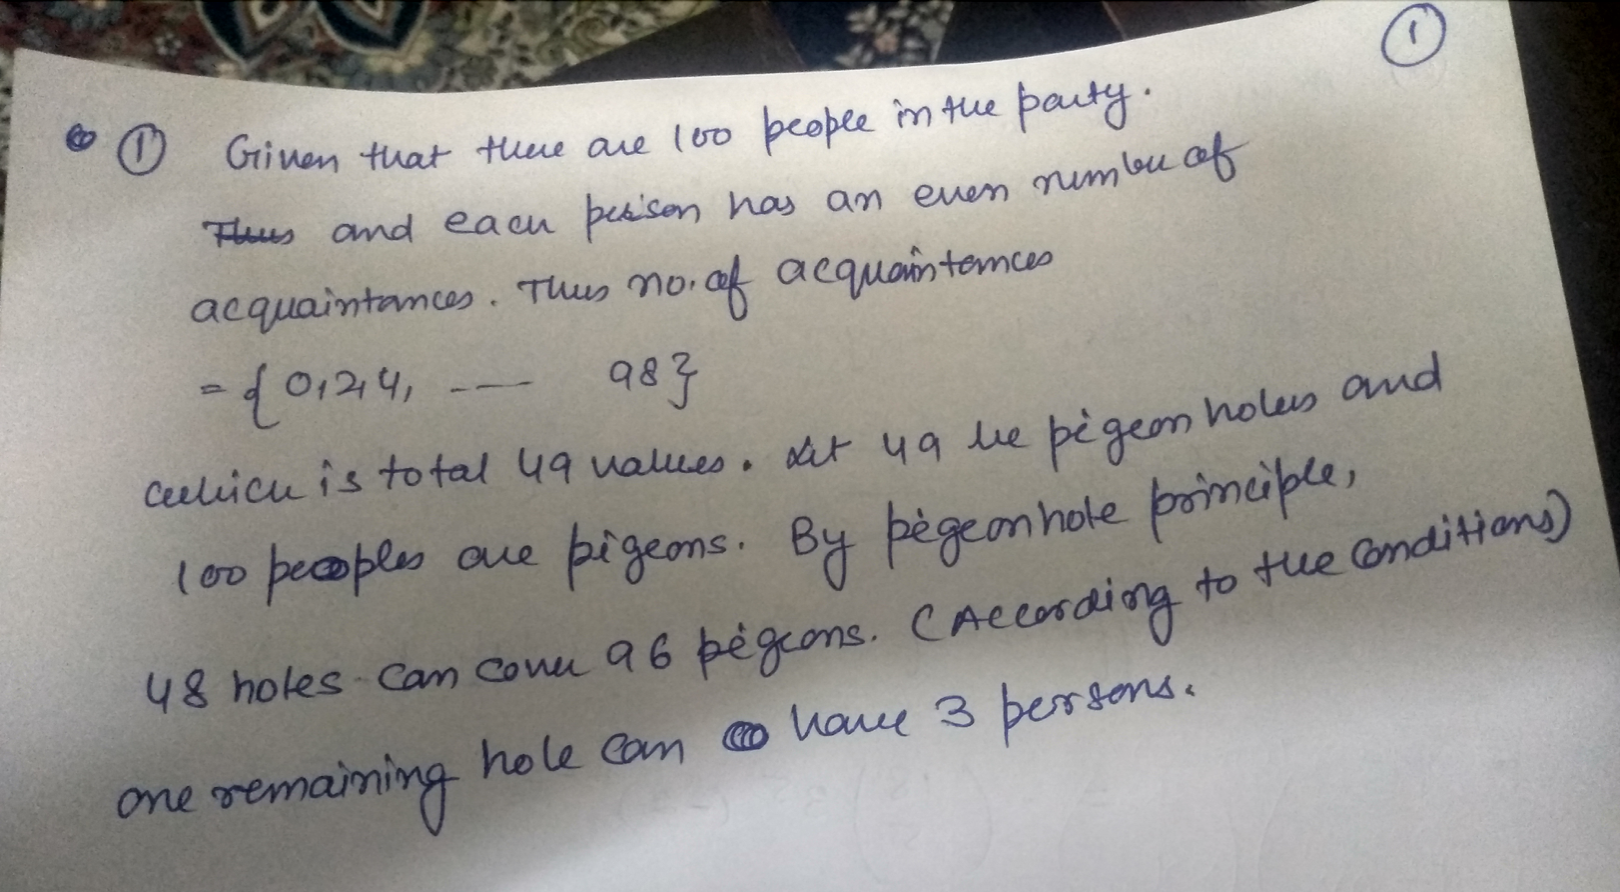 ①
① Given that there are 100 people in the party.
Thus and each person has an even number of
acquaintances. Thus no. of acquaintances
= { 0, 2, 4, --- 98}
which is total 49 values. Let 49 be pigeon holes and
100 peoples are pigeons. By pigeonhole principle,
48 holes can cover 96 pigeons. (According to the Conditions)
one remaining hole can have 3 persons.